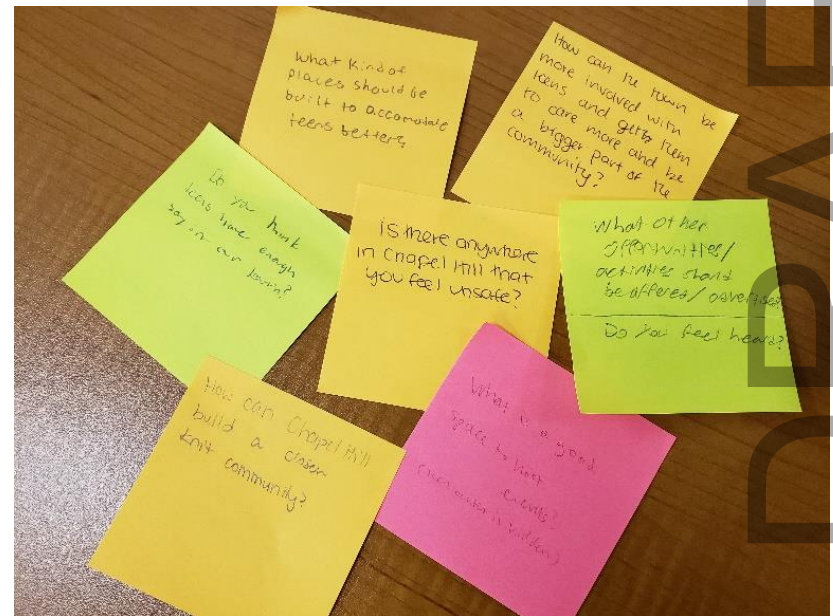 What Kind of
places should be
built to accomodate
teens better?
How can the town be
more involved with
teens and gets them
to care more and be
a bigger part of the
community?
Do you think
teens have enough
say in our town?
is there anywhere
in Chapel Hill that
you feel unsafe?
What other
opportunities/
activities should
be offered/ advertised
Do you feel heard?
How can Chapel Hill
build a closer
knit community?
What is a good
space to host
events?
DRAF